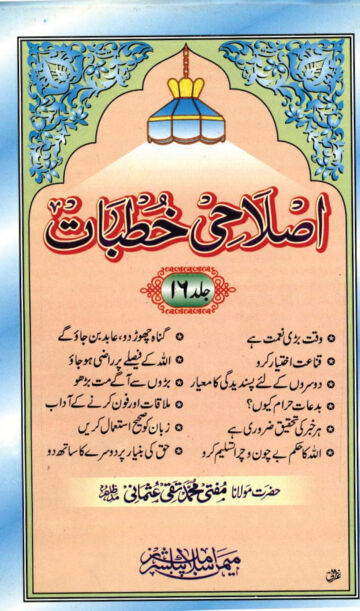 اصلاحی خطبات
جلد ۱۶
وقت بڑی نعمت ہے
گناہ چھوڑ دو، عابد بن جاؤ گے
قناعت اختیار کرو
اللہ کے فیصلے پر راضی ہو جاؤ
دوسروں کے لئے پسندیدگی کا معیار
بڑوں سے آگے مت بڑھو
بدعات حرام کیوں؟
ملاقات اور فون کرنے کے آداب
ہر خبر کی تحقیق ضروری ہے
زبان کو صحیح استعمال کریں
اللہ کا حکم بے چون و چرا تسلیم کرو
حق کی بنیاد پر دوسرے کا ساتھ دو
حضرت مولانا مفتی محمد تقی عثمانی مدظلہم
میمن اسلامک پبلشرز